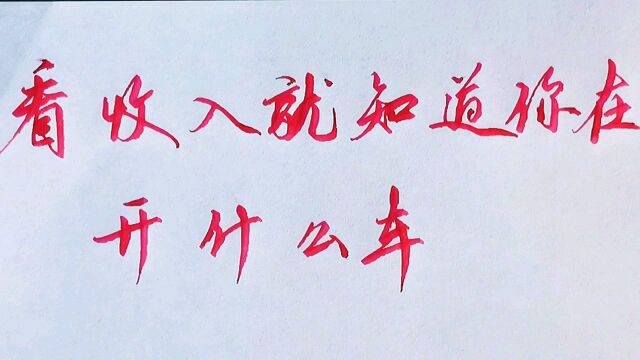 看收入就知道你在
开什么车